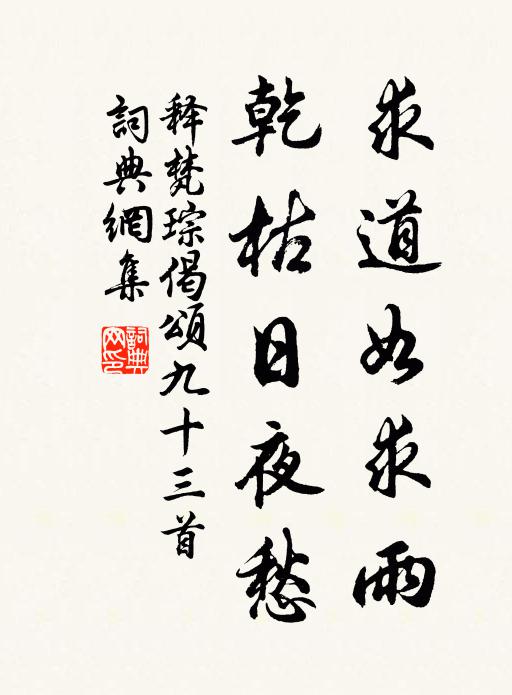 求道如求雨
乾枯日夜愁
释梵琮偈頌九十三首
詞典網集
詞典网印